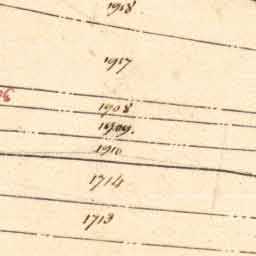 1918
1917
1908
1909.
1910
1714
1713